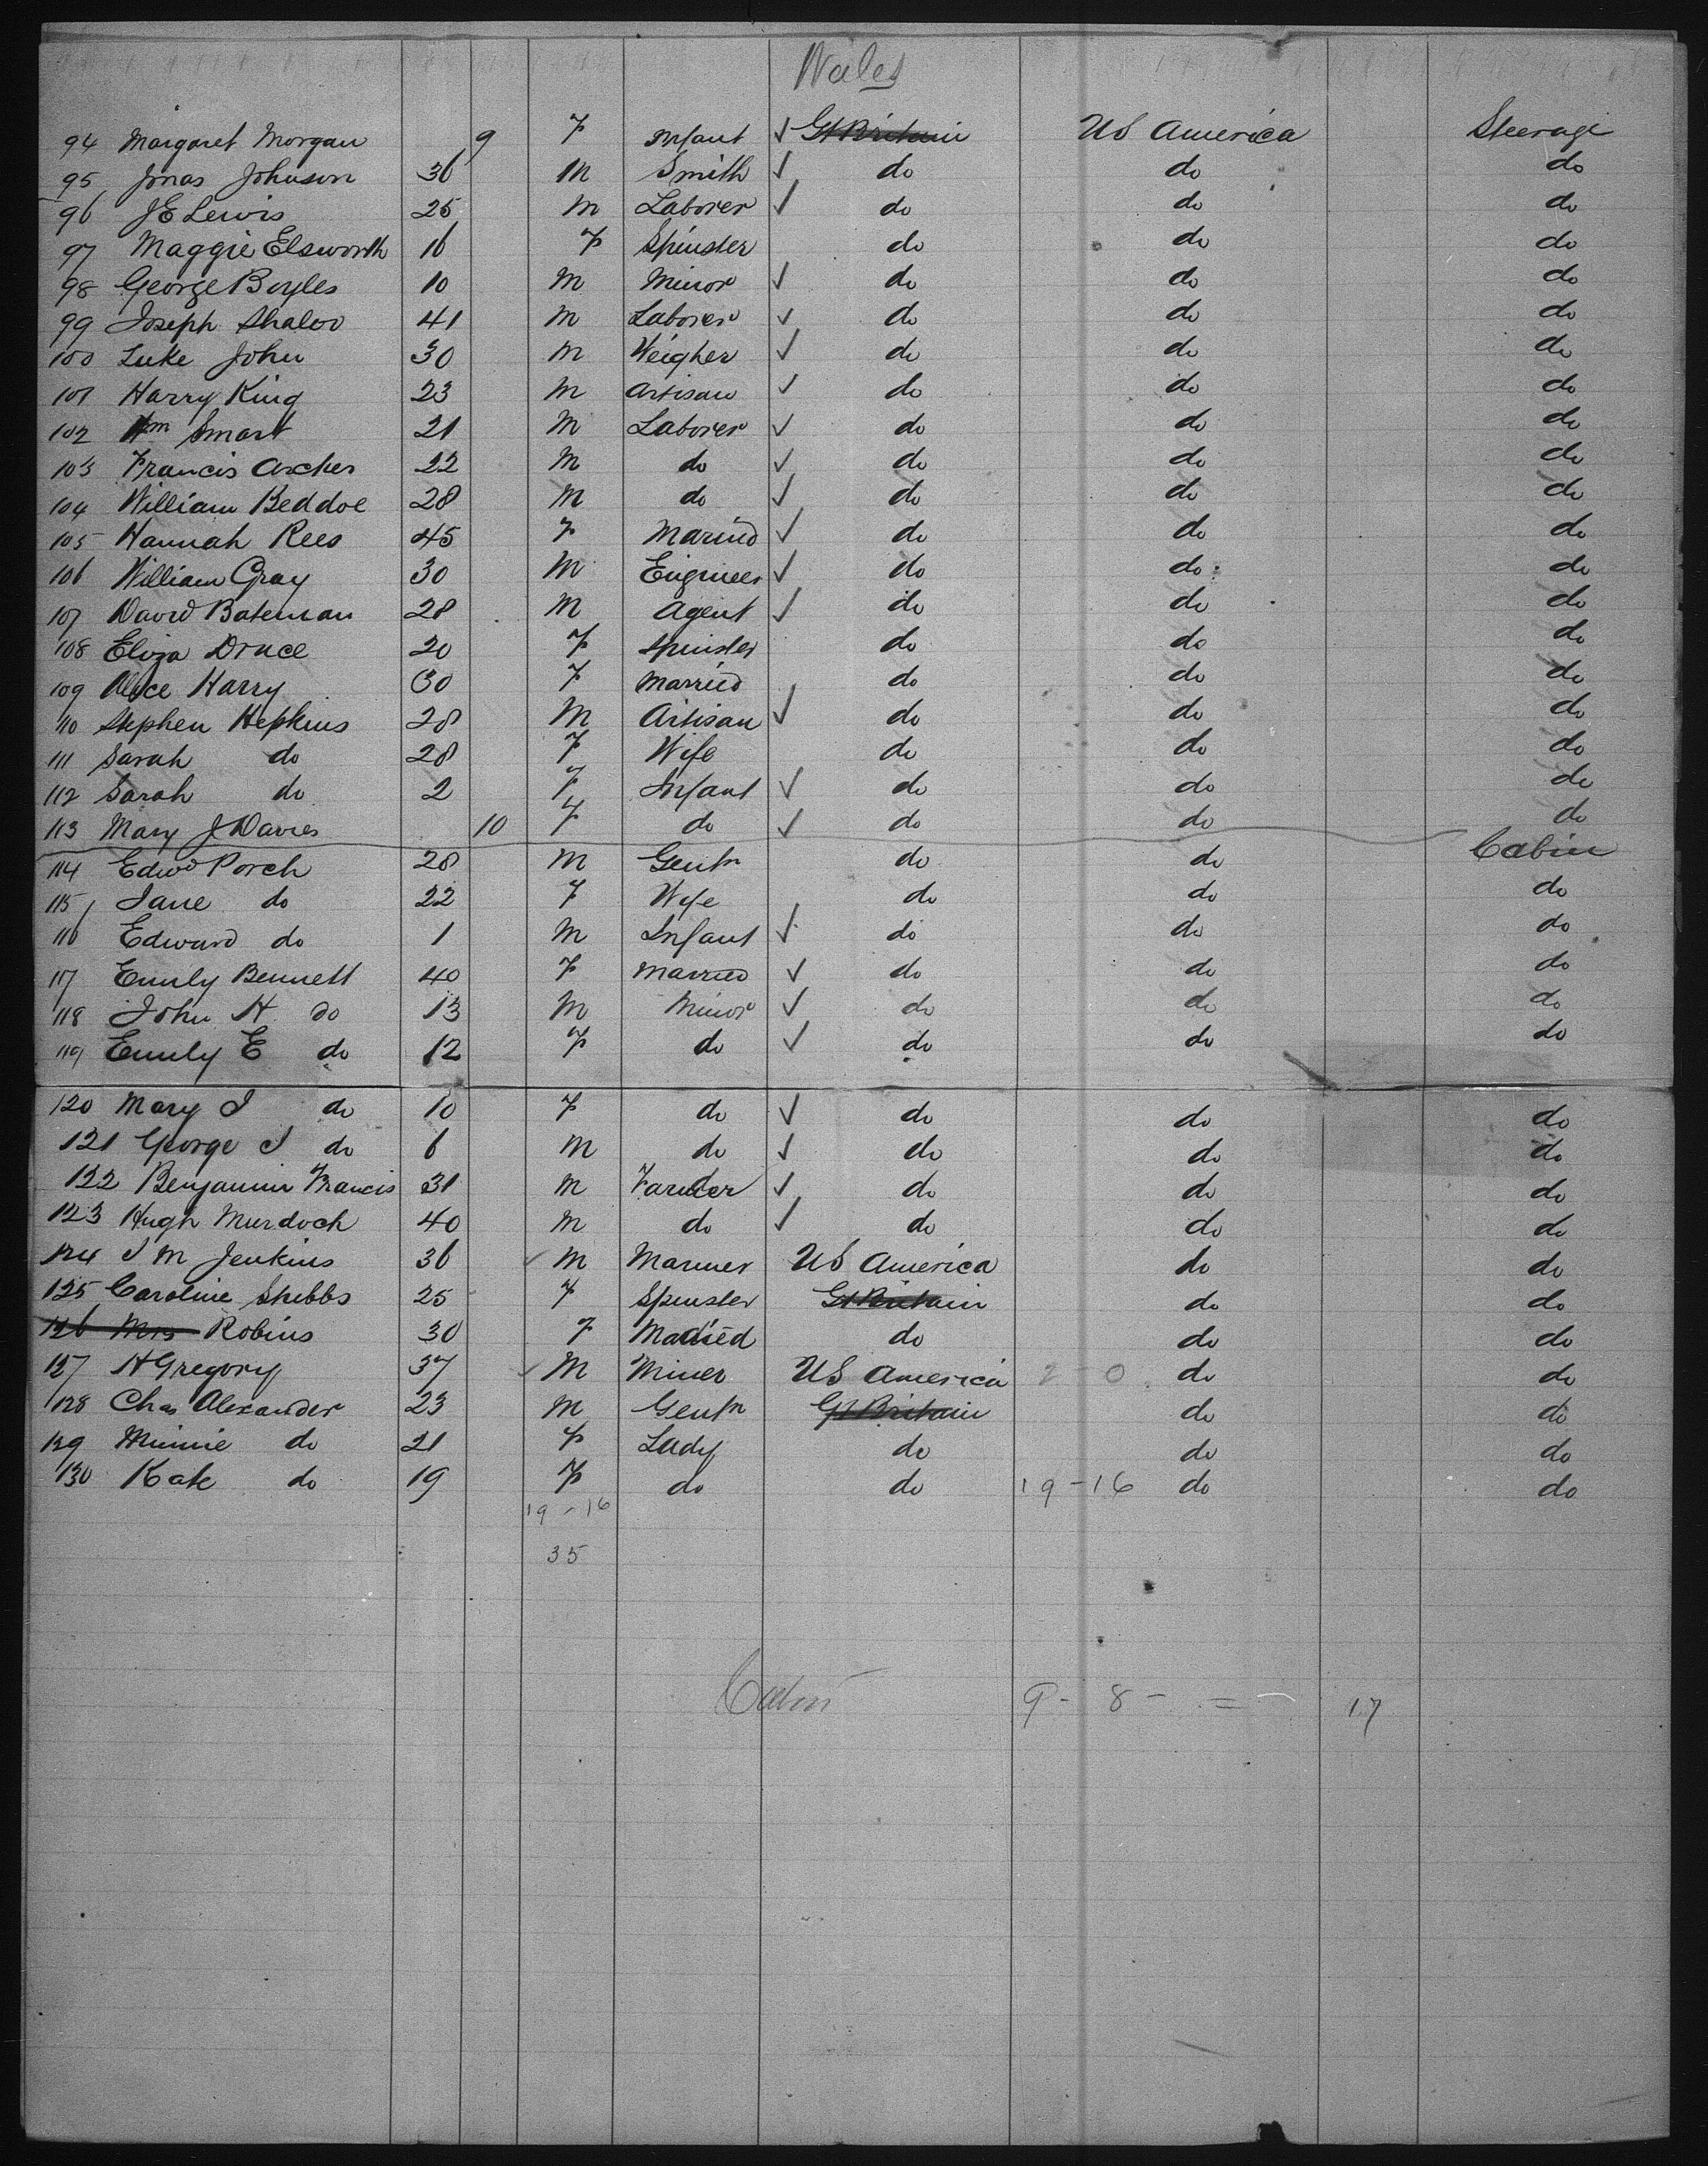 Wales
94 Margaret Morgan 9 F Infant ✓ Gt Britain US America Steerage
95 Jonas Johnson 36 M Smith ✓ do do do
96 J E Lewis 25 M Laborer ✓ do do do
97 Maggie Elsworth 16 F Spinster do do do
98 George Boyles 10 M Minor ✓ do do do
99 Joseph 41 M Laborer ✓ do do do
100 Luke John 30 M Weigher ✓ do do do
101 Harry King 23 M Artisan ✓ do do do
102 Wm Smart 21 M Laborer ✓ do do do
103 Francis Archer 22 M do ✓ do do do
104 William Beddoe 28 M do ✓ do do do
105 Hannah Rees 45 F Married ✓ do do do
106 William Gray 30 M Engineer ✓ do do do
107 David Bateman 28 M Agent ✓ do do do
108 Eliza Druce 20 F Spinster do do do
109 Alice Harry 30 F Married do do do
110 Stephen Hepkins 28 M Artisan ✓ do do do
111 Sarah do 28 F Wife do do do
112 Sarah do 2 F Infant ✓ do do do
113 Mary J Davies 10 F do ✓ do do do
114 Edwd Porch 28 M Gentn do do Cabin
115 Jane do 22 F Wife do do do
116 Edward do 1 M Infant ✓ do do do
117 Emily Bennett 40 F Married ✓ do do do
118 John H do 13 M Minor ✓ do do do
119 Emily E do 12 F do ✓ do do do
120 Mary J do 10 F do ✓ do do do
121 George J do 6 M do ✓ do do do
122 Benjamin Francis 31 M Farmer ✓ do do do
123 Hugh Murdoch 40 M do ✓ do do do
124 J M Jenkins 36 ✓ M Mariner US America do do
125 Caroline Stebbs 25 F Spinster Gt Britain do do
126 Mrs Robins 30 F Married do do do
127 H Gregory 37 ✓ M Miner US America 2 - 0 do do
128 Chas Alexander 23 M Gentn Gt Britain do do
129 Minnie do 21 F Lady do do do
130 Kate do 19 F do do 19-16 do do
19-16
35
Cabin 9 - 8 - = 17